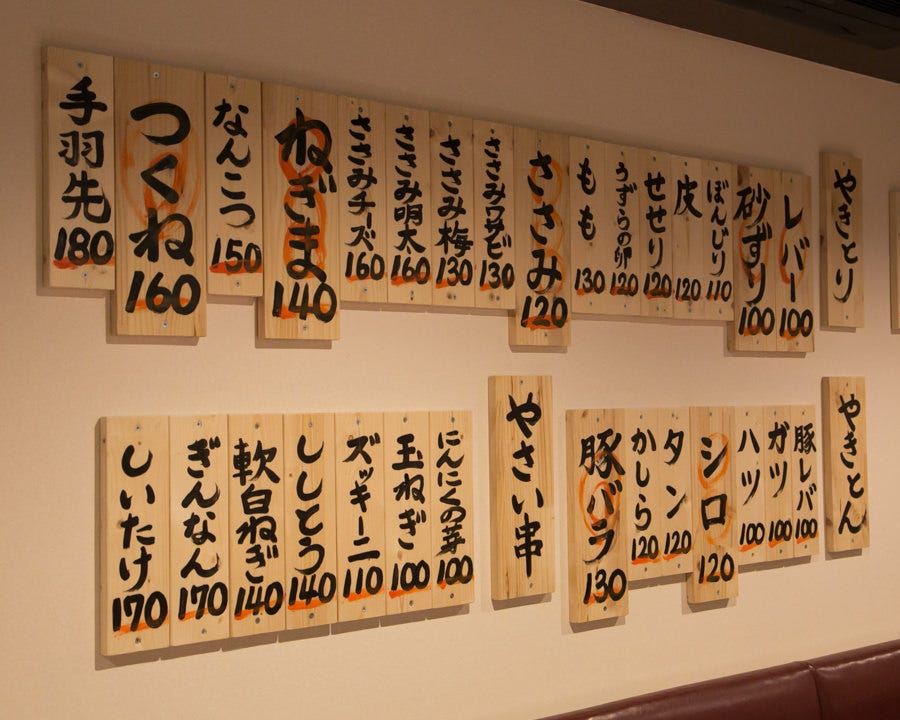 やきとり
レバー 100
砂ずり 100
ぼんじり 110
皮 120
せせり 120
うずらの卵 120
もも 130
ささみ 120
ささみワサビ 130
ささみ梅 130
ささみ明太 160
ささみチーズ 160
ねぎま 140
なんこつ 150
つくね 160
手羽先 180
やきとん
豚レバ 100
ガツ 100
ハツ 100
シロ 120
タン 120
かしら 120
豚バラ 130
やさい串
にんにくの芽 100
玉ねぎ 100
ズッキーニ 110
ししとう 140
軟白ねぎ 140
ぎんなん 170
しいたけ 170